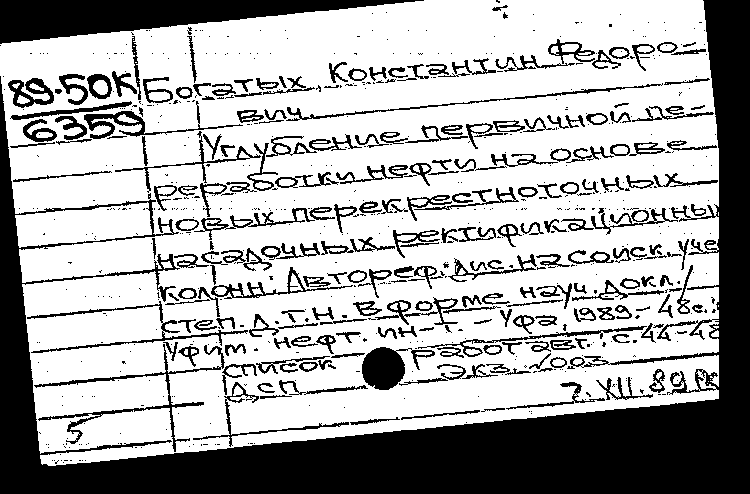 89-50К
6359
Богатых, Константин Федоро-
вич.
Углубление первичной пе-
реработки нефти на основе
новых перекрестноточных
насадочных ректификационных
колонн: Автореф. дис. на соиск. учен
степ. д.т.н. в форме науч. докл. /
Уфим. нефт. ин-т. - Уфа, 1989. - 48с.:
список работ авт.: с.44-48
ДСП Экз. №003
7.XII.89
5